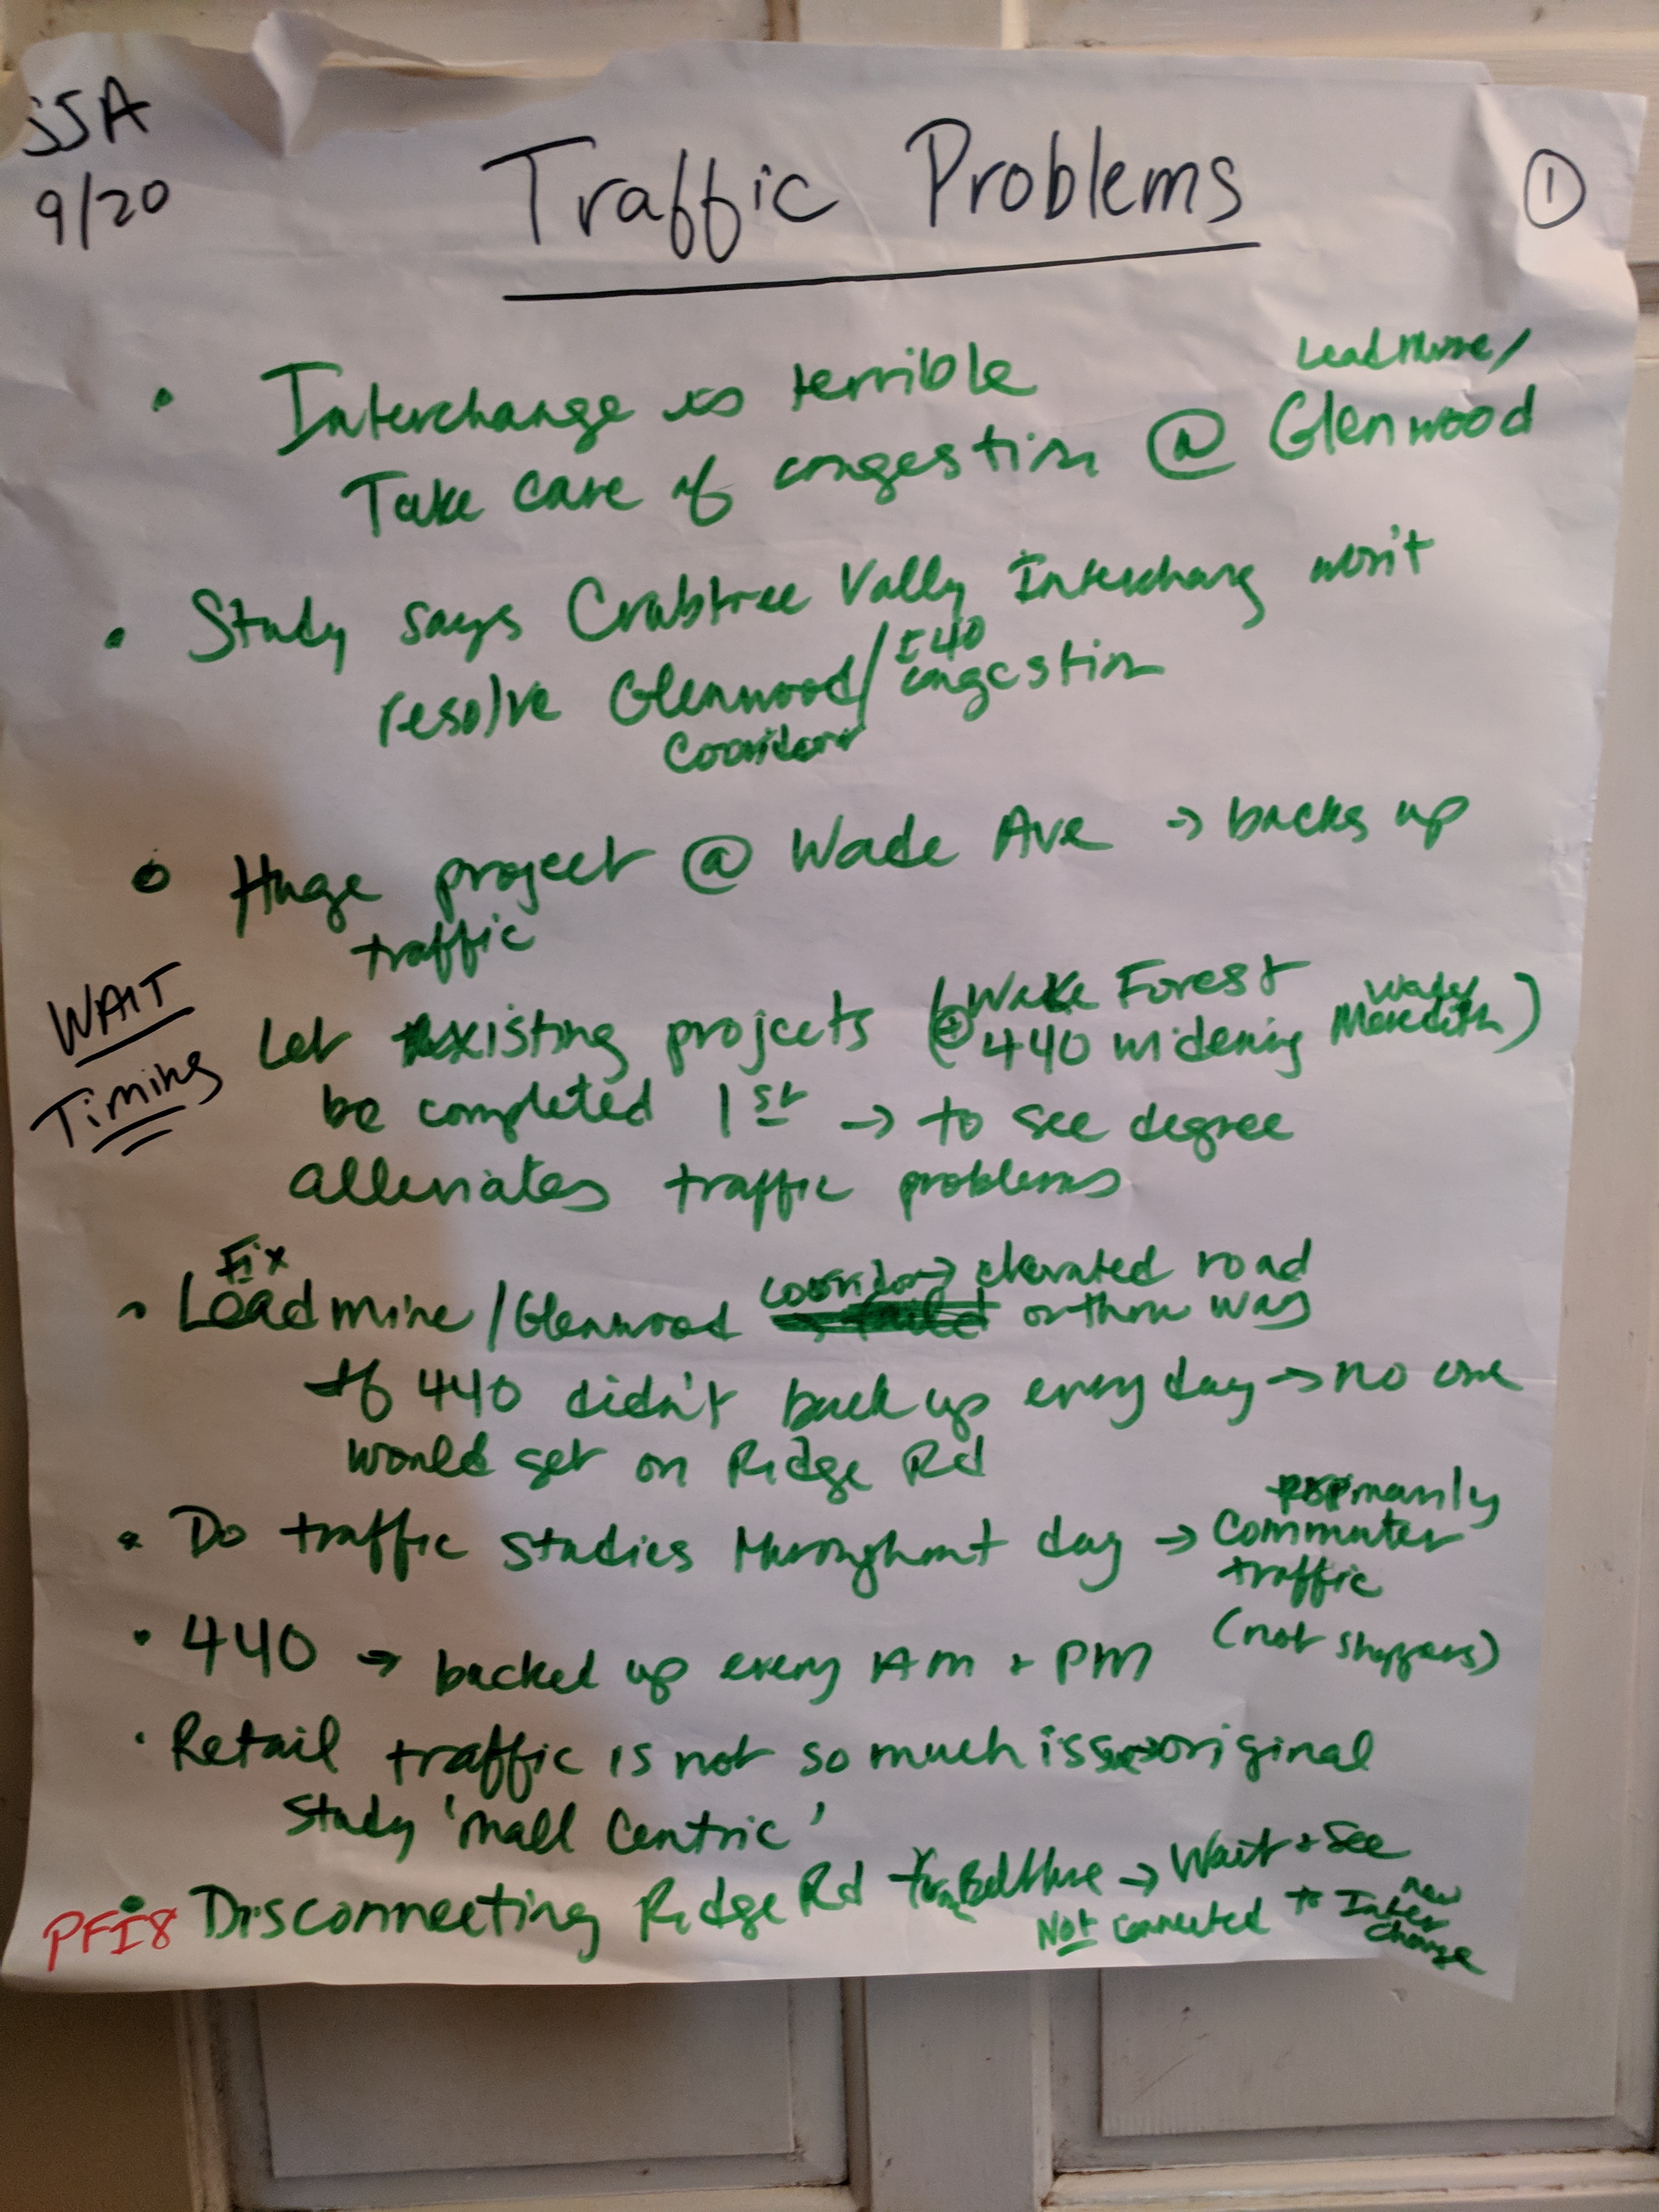 SSA
9/20
Traffic Problems
①
• Interchange is terrible
Leadmine/
Take care of congestion @ Glenwood
• Study says Crabtree Vally Interchang won't
resolve Glenwood/ I 40 congestion
Cooridorr
• Huge project @ Wade Ave → backs up
traffic
WAIT
Timing
Let existing projects (@ Wake Forest
440 widening Wade/ Meredith)
be completed 1st → to see degree
alleviates traffic problems
Fix
• Leadmine/Glenwood cooridor → elevated road
or thru way
If 440 didn't back up every day → no one
would get on Ridge Rd
• Do traffic studies throughout day → primarily
commuter
traffic
(not shoppers)
• 440 → backed up every AM + PM
• Retail traffic is not so much issue → original
study 'mall centric'
PFI8
• Disconnecting Ridge Rd from Beltline → Wait + See
Not connected to new
Inter
change